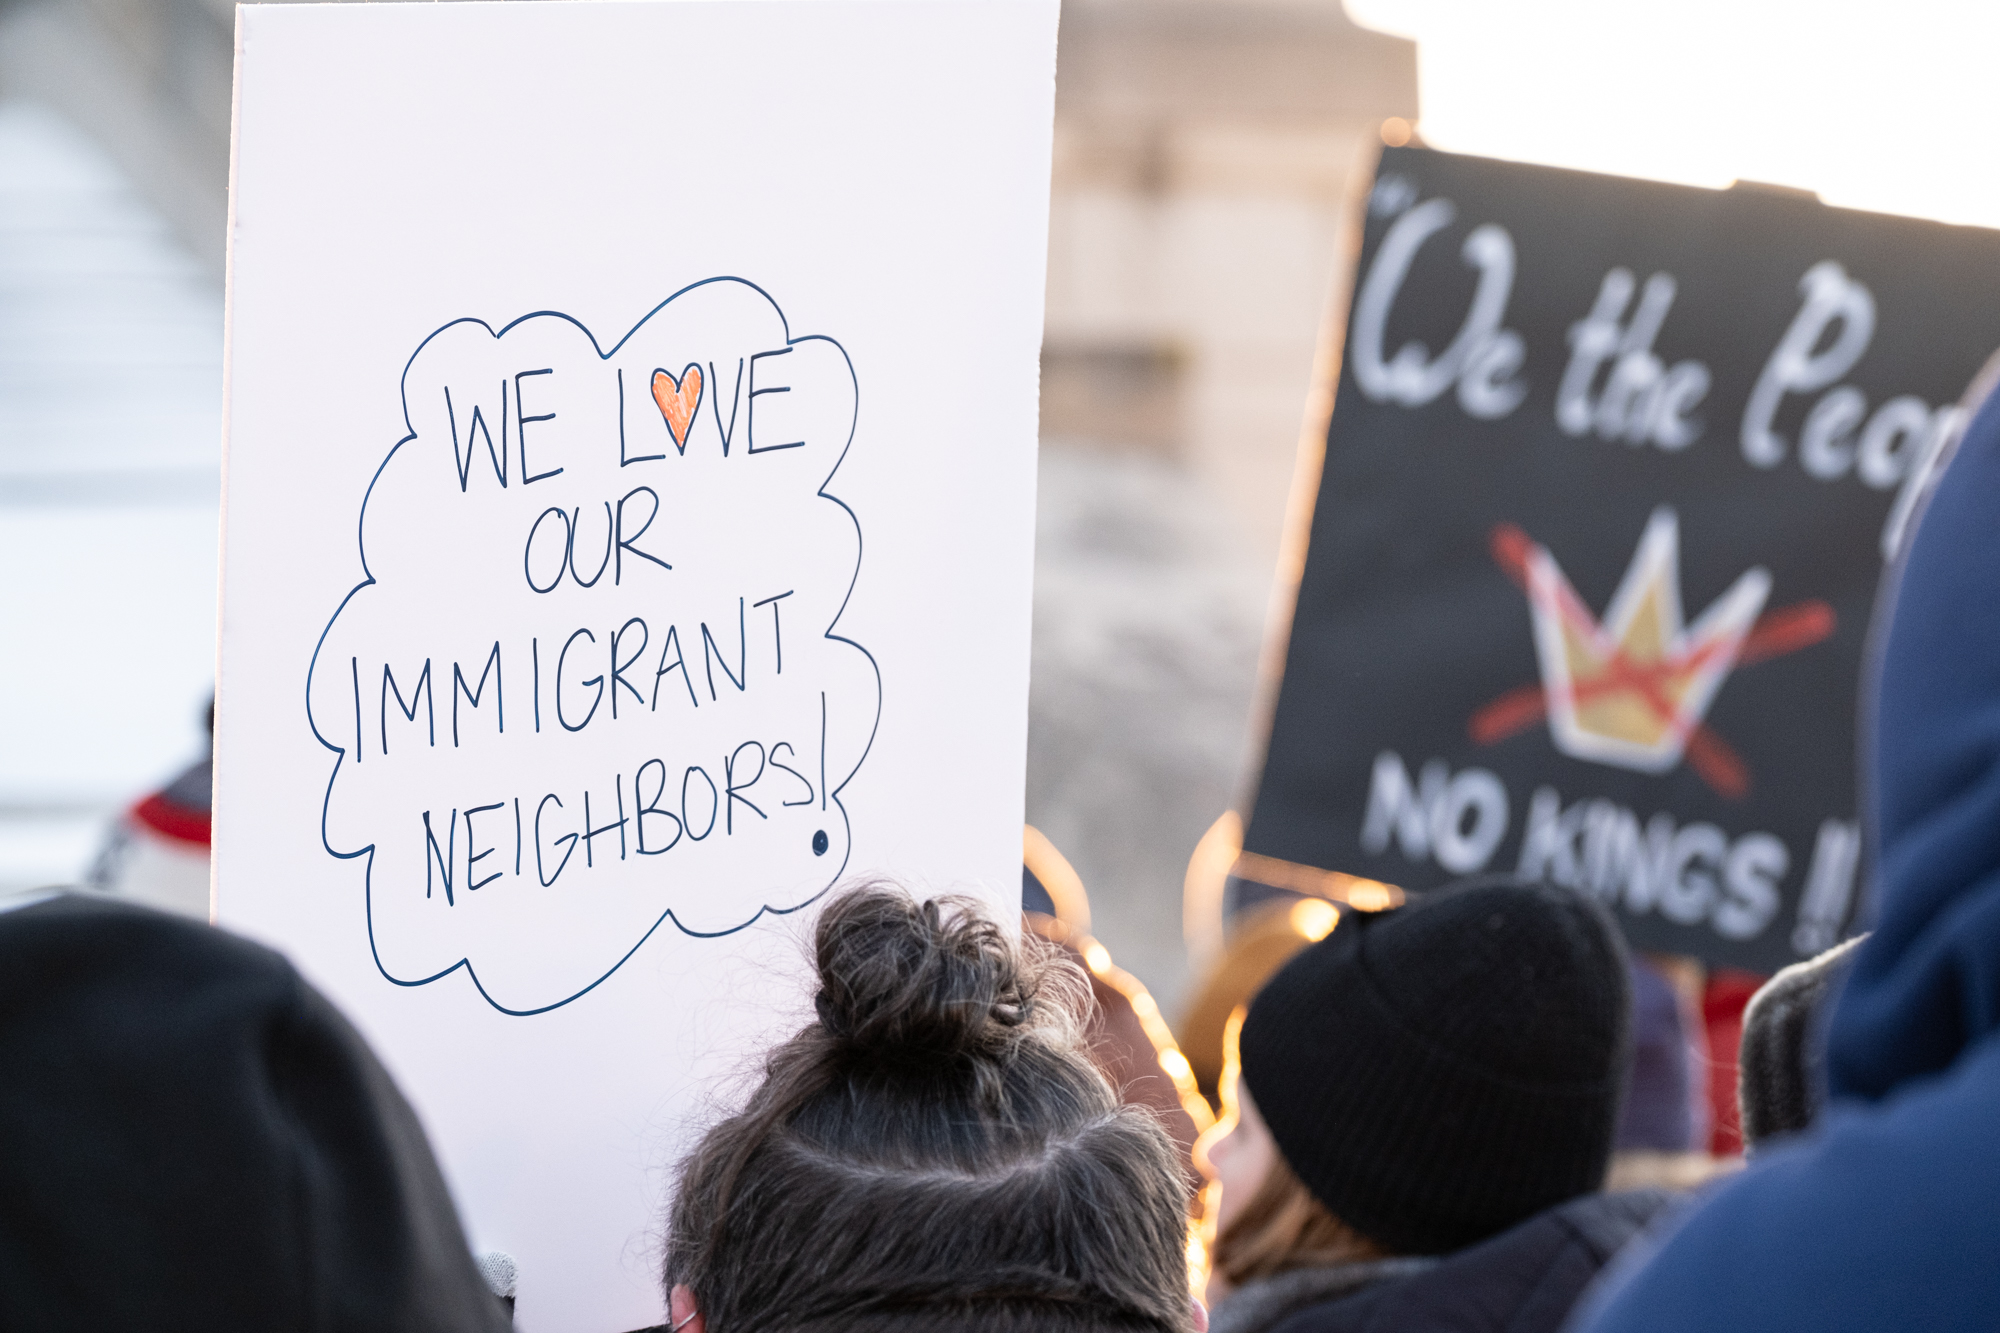 WE LOVE
OUR
IMMIGRANT
NEIGHBORS!
"We the Peop
NO KINGS!!